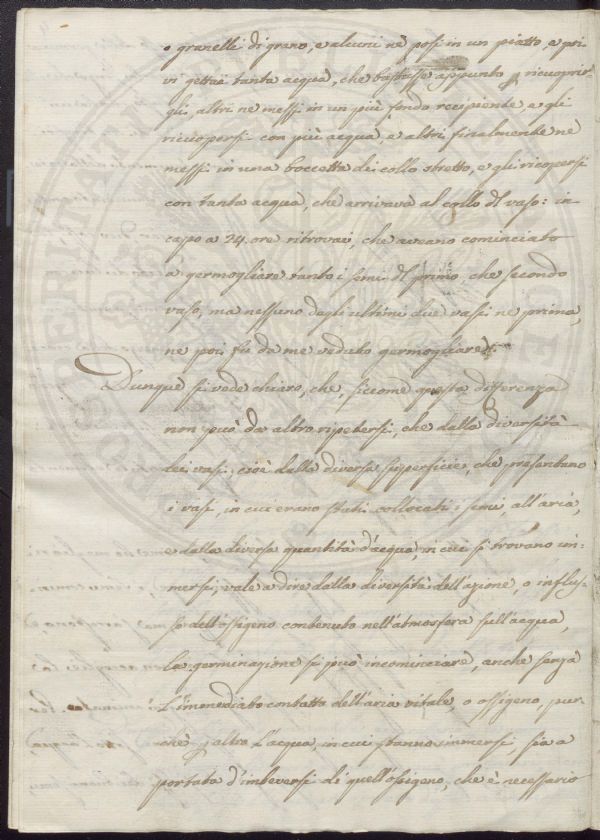 o granelli di grano, e alcuni ne posi in un piatto, e poi
vi gettai tanta acqua, che bastasse appunto p ricuoprir-
gli, altri ne messi in un più fondo recipiente, e gli
ricuopersi con più acqua, e altri finalmente ne
messi in una boccetta dei collo stretto, e gli ricopersi
con tanta acqua, che arrivava al collo del vaso: in
capo a 24. ore ritrovai, che aveano cominciato
a germogliare tanto i semi del primo, che secondo
vaso, ma nessuno degli ultimi due vasi ne prima,
ne poi fu da me veduto germogliare.
Dunque si vede chiaro, che, siccome questa differenza
non può da altro ripetersi, che dalla diversità
dei vasi, cioè dalla diversa superficie, che presentano
i vasi, in cui erano stati collocati i semi all'aria,
e dalla diversa quantità d'acqua, in cui si trovano im-
mersi, vale a dire dalla diversità dell'azione, o influs-
so dell'ossigeno contenuto nell'atmosfera sull'acqua,
la germinazione si può incominciare, anche senza
l'immediato contatto dell'aria vitale, o ossigeno, pur
chè p altro l'acqua, in cui stanno immersi sia a
portata d'imbeversi di quell'ossigeno, che è necessario